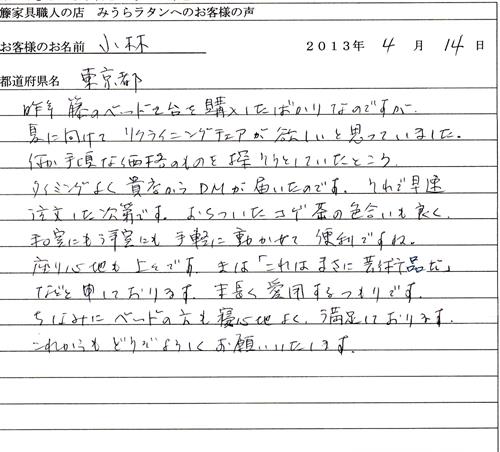 籐家具職人の店 みうらラタンへのお客様の声
お客様のお名前 小林 2013年 4 月 14 日
都道府県名 東京都
昨年 籐のベッド2台を購入したばかりなのですが、
夏に向けて リクライニングチェアが欲しいと思っていました。
何か手頃な価格のものを探そうとしていたところ、
タイミングよく 貴店からDMが届いたのです。それで早速
注文した次第です。おちついたコゲ茶の色合いも良く、
和室にも洋室にも 手軽に動かせて 便利ですね。
座り心地も上々です。夫は「これはまさに芸術品だ」
などと申しております。末長く愛用するつもりです。
ちなみに ベッドの方も寝心地よく、満足しております。
これからも どうぞよろしくお願いいたします。